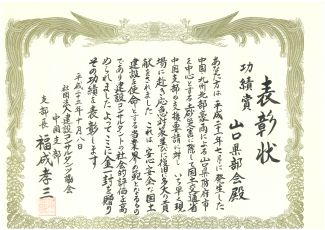 表彰状
功績賞
山口県部会殿
あなた方は平成二十一年七月に発生した
中国九州北部豪雨による山口県防府市
を中心とする土砂災害に際して国土交通省
中国支部の支援要請に対しいち早く現
場に赴き応急対策並びに復旧に多大の貢
献をされました これは安心安全な国土
建設を使命とする当業界の範となるもの
であり建設コンサルタントの社会的評価を高
められました よってここに金一封を贈り
その功績を表彰します
平成二十二年
社団法人建設コンサルタンツ協会
中国支部
支部長 福成孝三